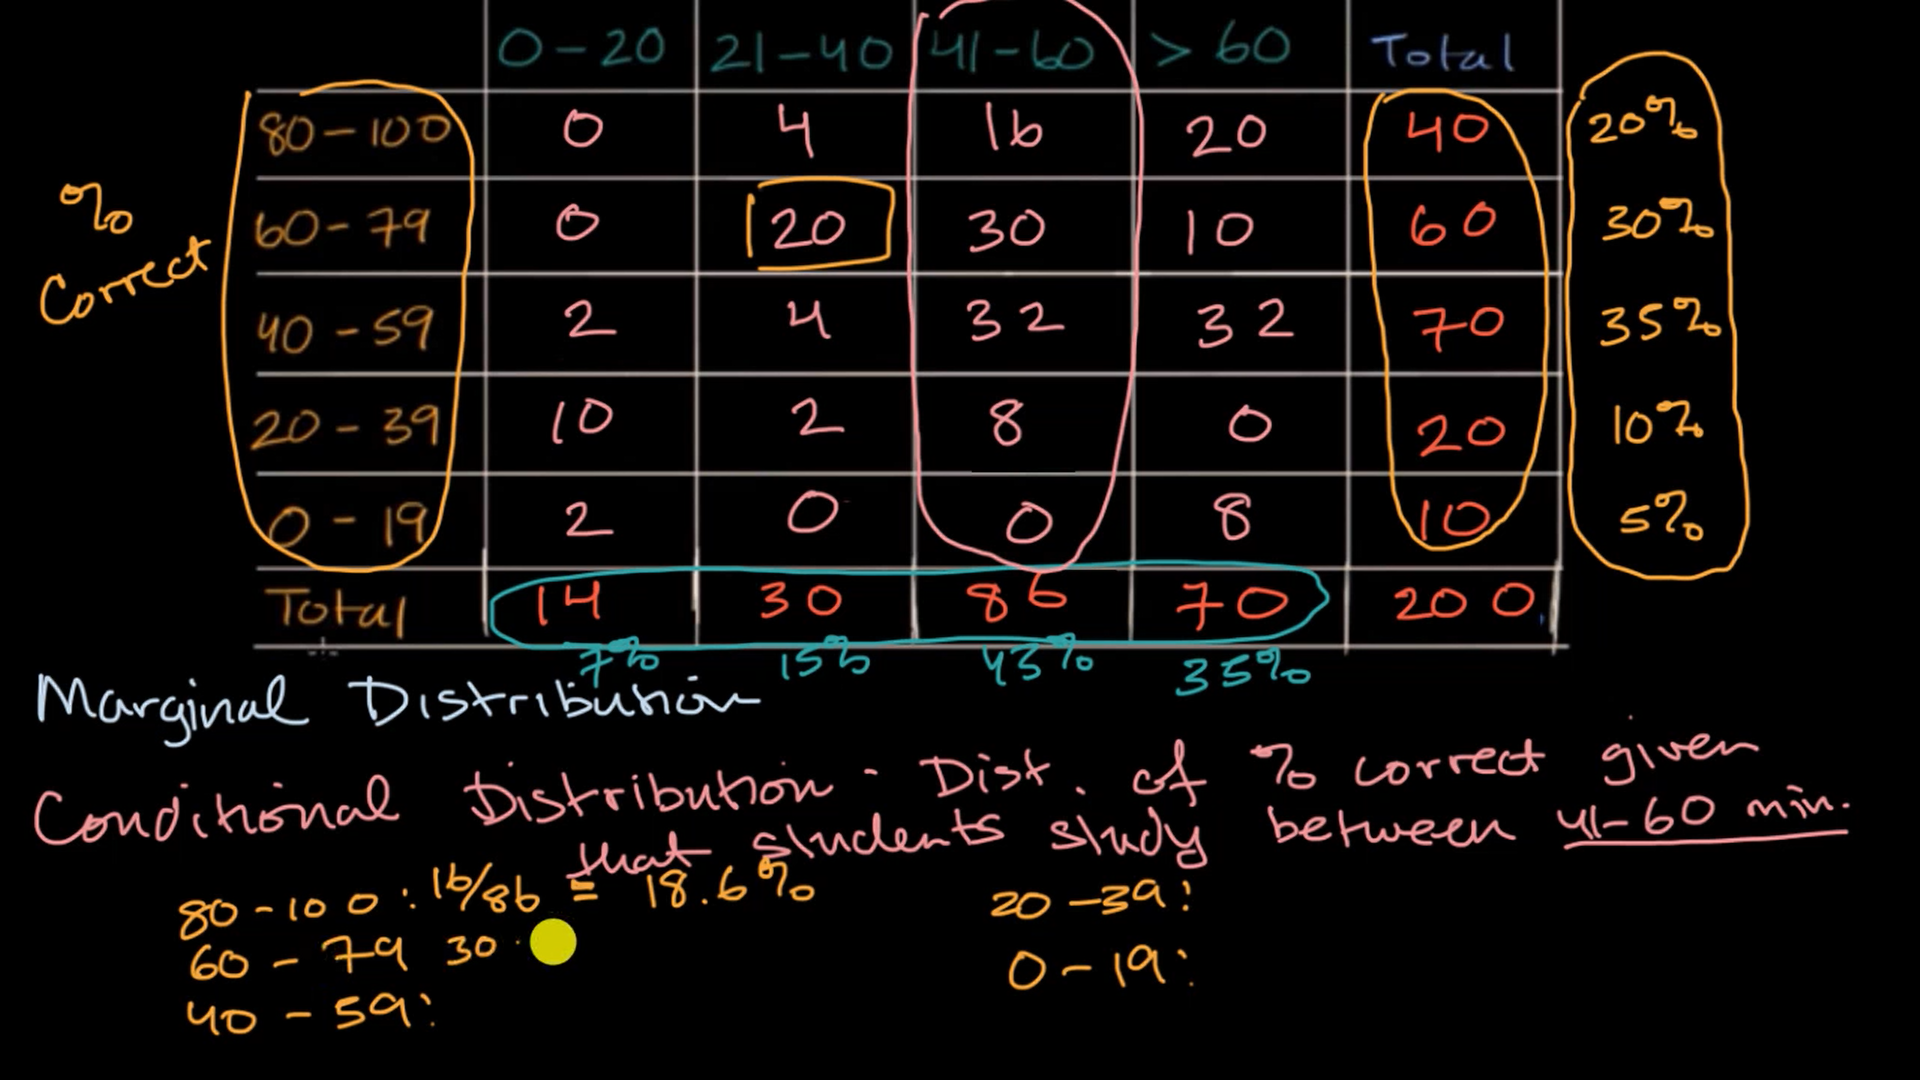 0-20 21-40 41-60 > 60 Total
80-100 0 4 16 20 40 20%
60-79 0 20 30 10 60 30%
% Correct
40-59 2 4 32 32 70 35%
20-39 10 2 8 0 20 10%
0-19 2 0 0 8 10 5%
Total 14 30 86 70 200
7% 15% 43% 35%
Marginal Distribution
Conditional Distribution - Dist. of % correct given
that students study between 41-60 min.
80-100: 16/86 = 18.6%
60-79 30
40-59:
20-39:
0-19: